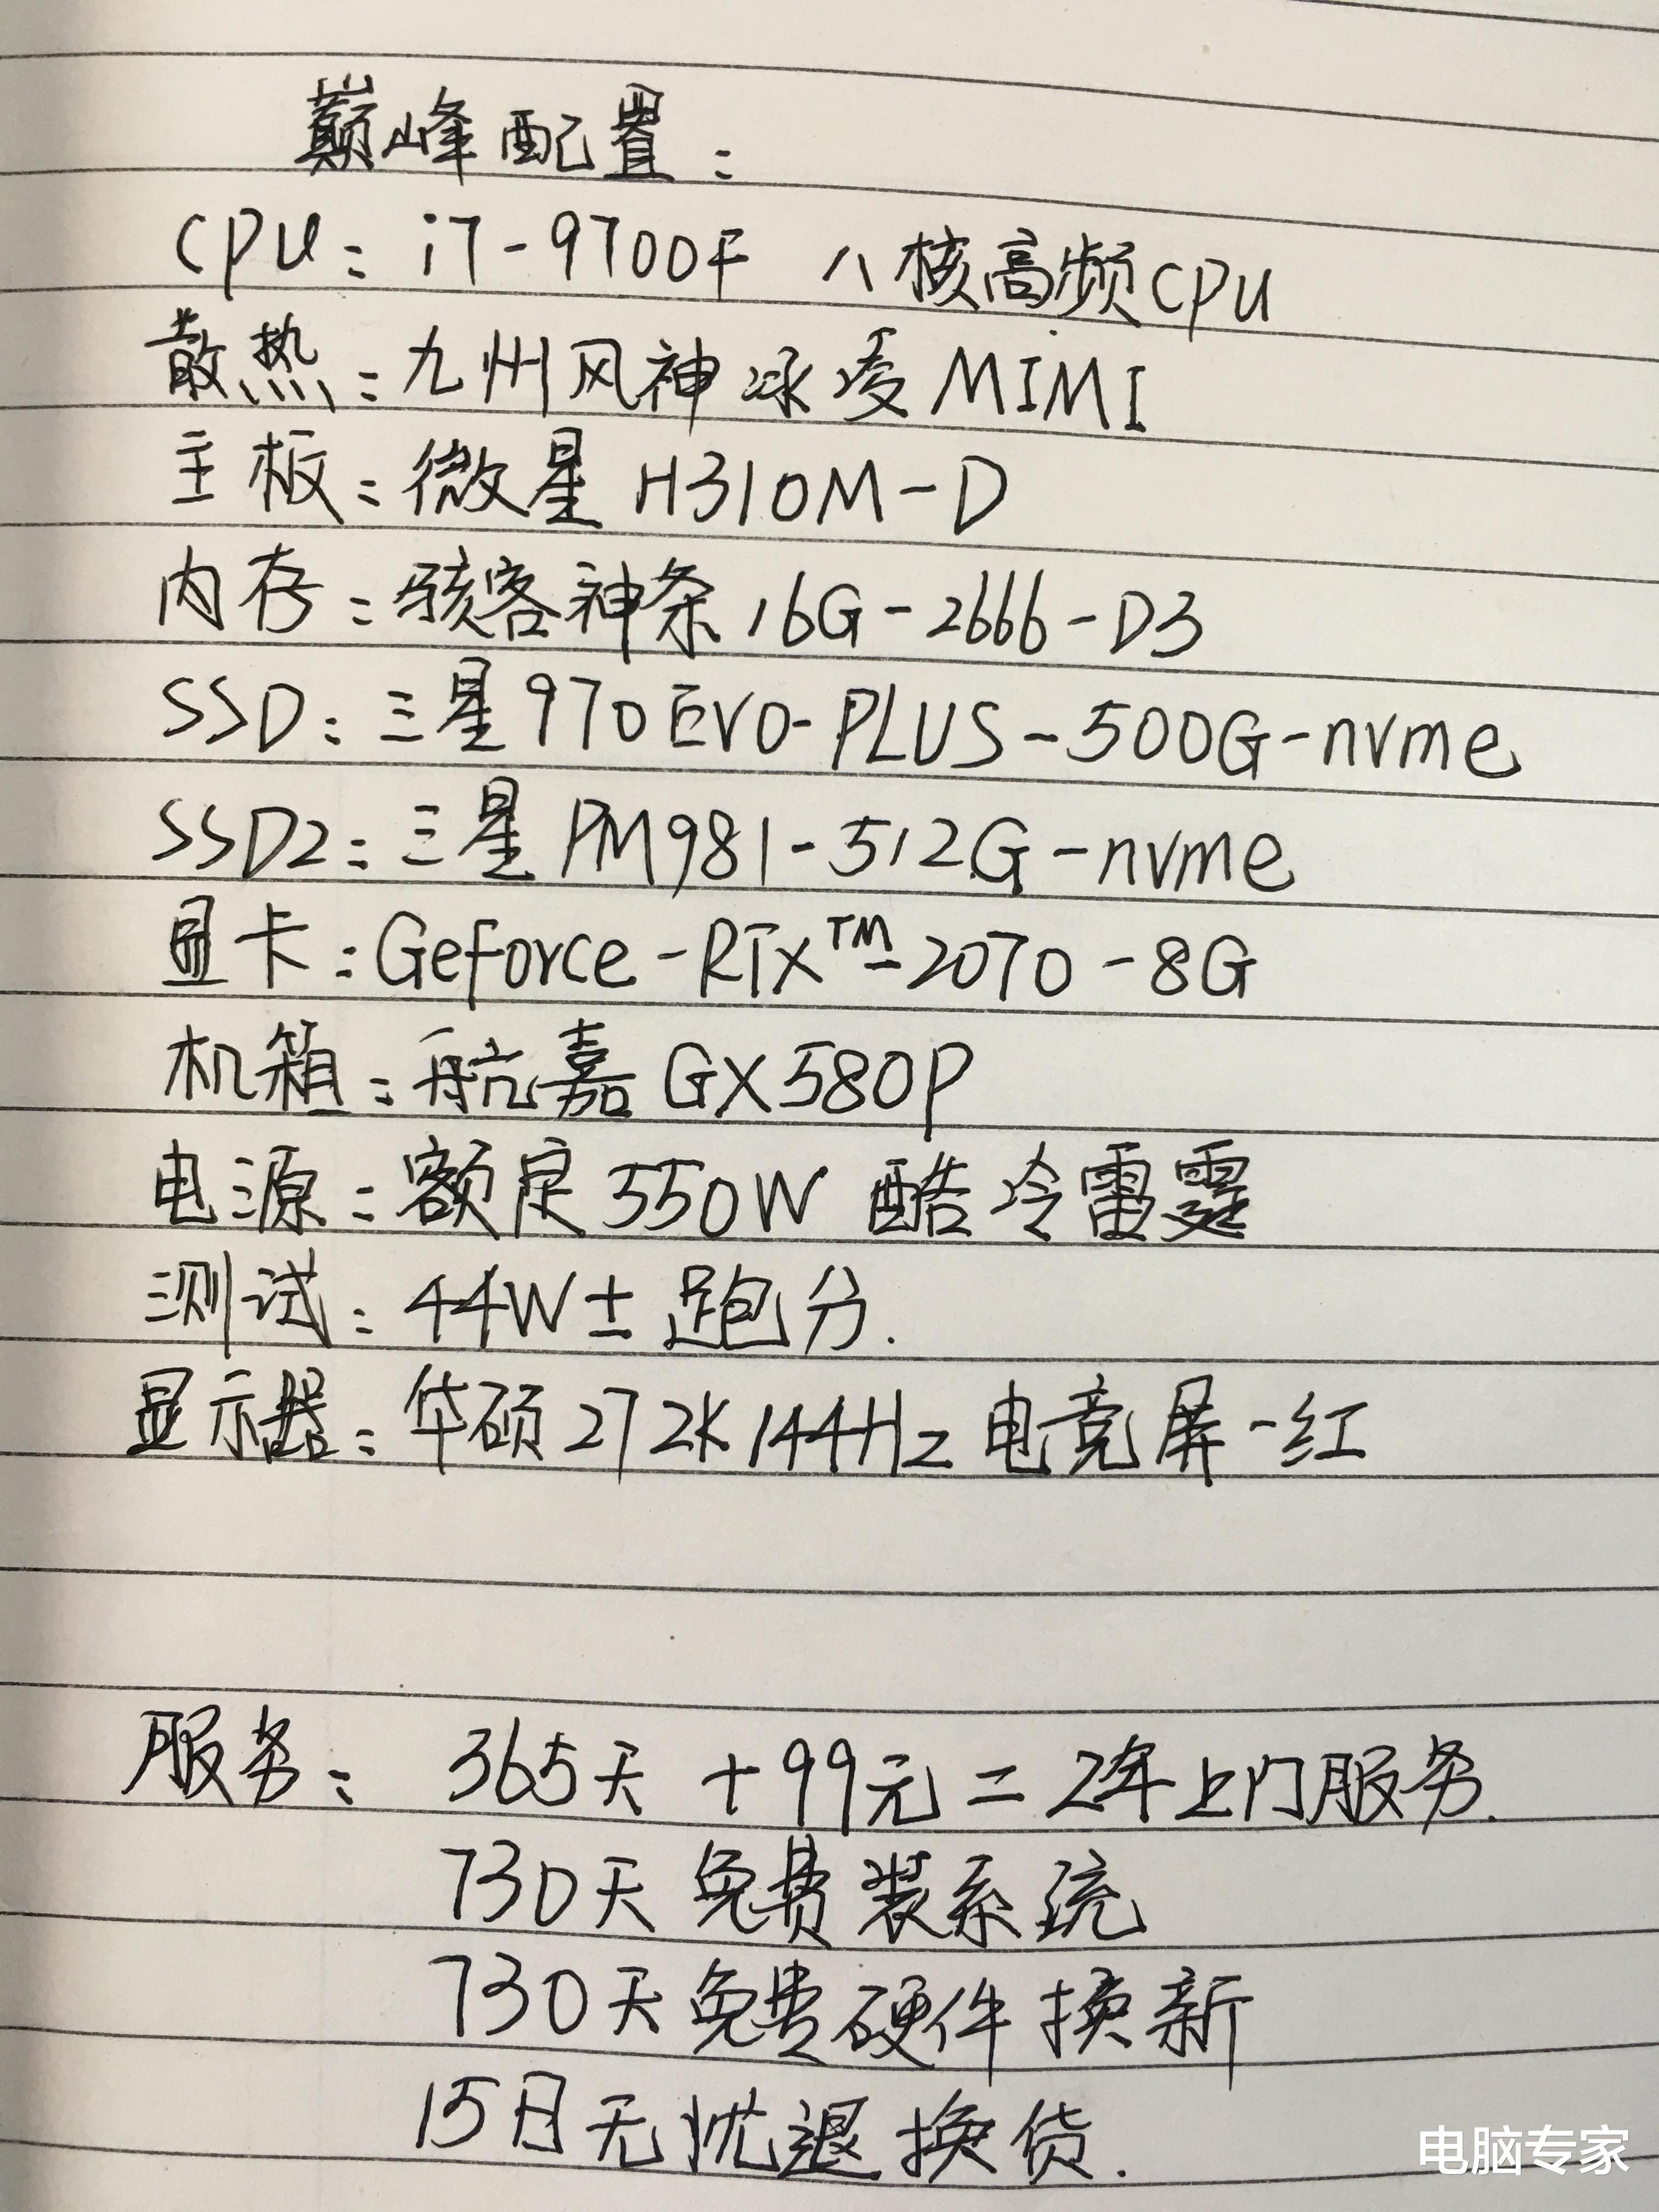 巅峰配置：
CPU：i7-9700F 八核高频CPU
散热：九州风神冰凌MIMI
主板：微星H310M-D
内存：骇客神条16G-2666-D3
SSD：三星970EVO-PLUS-500G-nvme
SSD2：三星PM981-512G-nvme
显卡：Geforce-RTX™-2070-8G
机箱：航嘉GX580P
电源：额定550W 酷冷雷霆
测试：44W±跑分.
显示器：华硕27 2K 144Hz电竞屏-红
服务：365天+99元=2年上门服务.
730天免费装系统
730天免费硬件换新
15日无忧退换货.
电脑专家